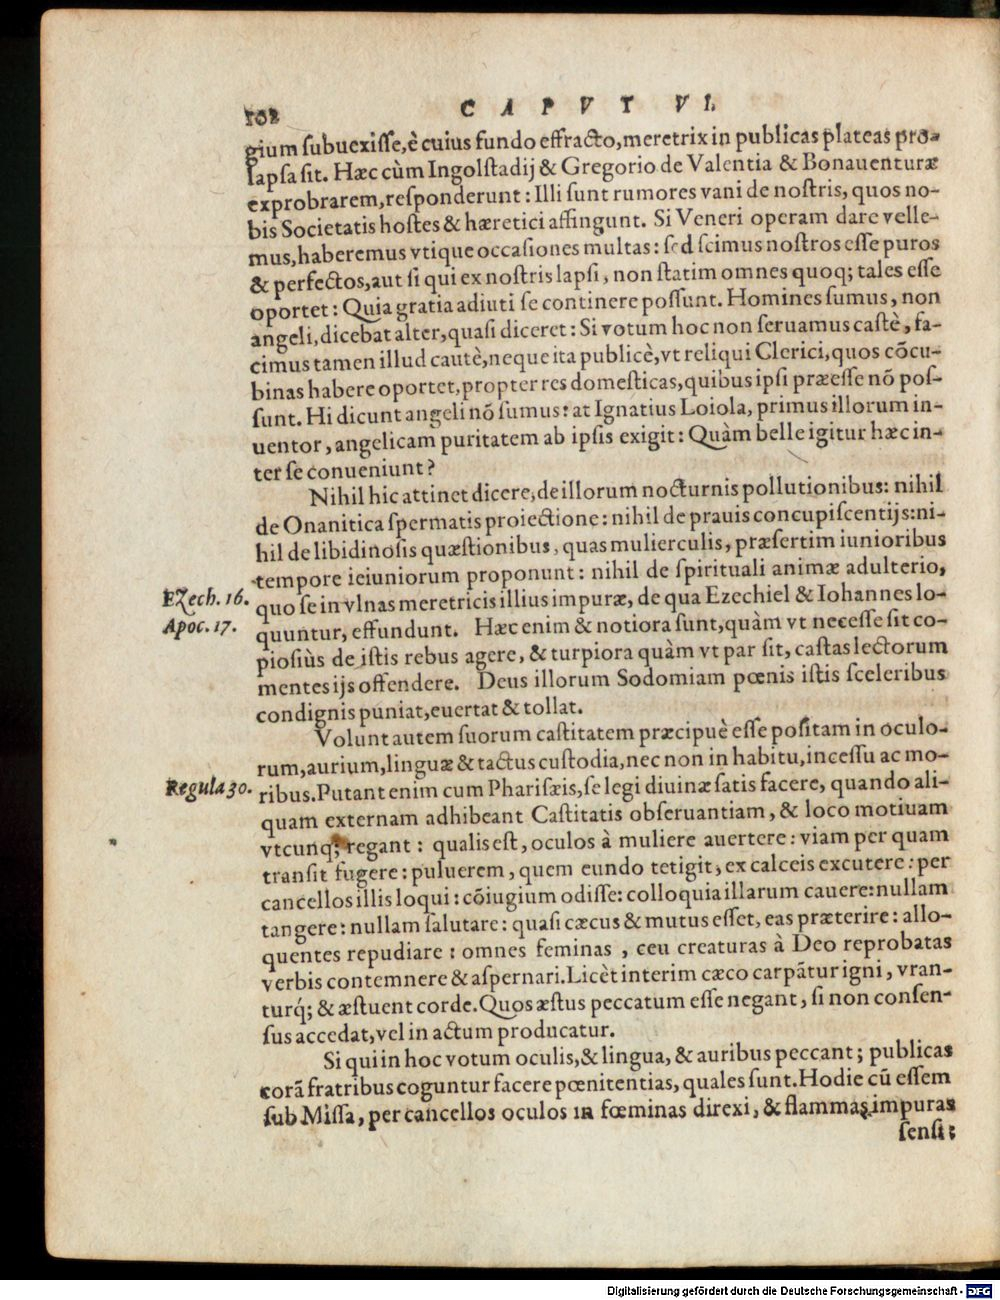 102
CAPVT VI.
gium subuexisse, è cuius fundo effracto, meretrix in publicas plateas pro-
lapsa sit. Hæc cùm Ingolstadij & Gregorio de Valentia & Bonauenturæ
exprobrarem, responderunt: Illi sunt rumores vani de nostris, quos no-
bis Societatis hostes & hæretici affingunt. Si Veneri operam dare velle-
mus, haberemus vtique occasiones multas: sed scimus nostros esse puros
& perfectos, aut si qui ex nostris lapsi, non statim omnes quoq; tales esse
oportet: Quia gratia adiuti se continere possunt. Homines sumus, non
angeli, dicebat alter, quasi diceret: Si votum hoc non seruamus castè, fa-
cimus tamen illud cautè, neque ita publicè, vt reliqui Clerici, quos cõcu-
binas habere oportet, propter res domesticas, quibus ipsi præesse nõ pos-
sunt. Hi dicunt angeli nõ sumus: at Ignatius Loiola, primus illorum in-
uentor, angelicam puritatem ab ipsis exigit: Quàm belle igitur hæc in-
ter se conueniunt?
Nihil hic attinet dicere, de illorum nocturnis pollutionibus: nihil
de Onanitica spermatis proiectione: nihil de prauis concupiscentijs: ni-
hil de libidinosis quæstionibus, quas mulierculis, præsertim iunioribus
tempore ieiuniorum proponunt: nihil de spirituali animæ adulterio,
Ezech. 16.
quo se in vlnas meretricis illius impuræ, de qua Ezechiel & Iohannes lo-
Apoc. 17.
quuntur, effundunt. Hæc enim & notiora sunt, quàm vt necesse sit co-
piosiùs de istis rebus agere, & turpiora quàm vt par sit, castas lectorum
mentes ijs offendere. Deus illorum Sodomiam pœnis istis sceleribus
condignis puniat, euertat & tollat.
Volunt autem suorum castitatem præcipuè esse positam in oculo-
rum, aurium, linguæ & tactus custodia, nec non in habitu, incessu ac mo-
Regula 30.
ribus. Putant enim cum Pharisæis, se legi diuinæ satis facere, quando ali-
quam externam adhibeant Castitatis obseruantiam, & loco motiuam
vtcunq; regant: qualis est, oculos à muliere auertere: viam per quam
transit fugere: puluerem, quem eundo tetigit, ex calceis excutere: per
cancellos illis loqui: cõiugium odisse: colloquia illarum cauere: nullam
tangere: nullam salutare: quasi cæcus & mutus esset, eas præterire: allo-
quentes repudiare: omnes feminas, ceu creaturas à Deo reprobatas
verbis contemnere & aspernari. Licèt interim cæco carpãtur igni, vran-
turq́; & æstuent corde. Quos æstus peccatum esse negant, si non consen-
sus accedat, vel in actum producatur.
Si qui in hoc votum oculis, & lingua, & auribus peccant; publicas
corã fratribus coguntur facere pœnitentias, quales sunt. Hodie cũ essem
sub Missa, per cancellos oculos in fœminas direxi, & flammas impuras
sensi:
Digitalisierung gefördert durch die Deutsche Forschungsgemeinschaft - DFG